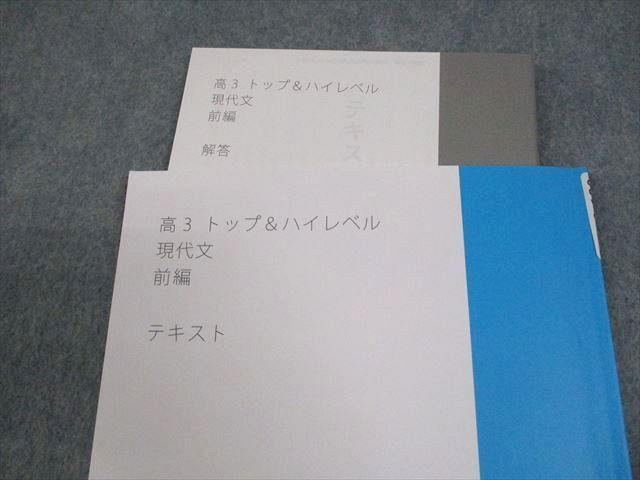 高3 トップ&ハイレベル
現代文
前編
解答
テキス
高3 トップ&ハイレベル
現代文
前編
テキスト